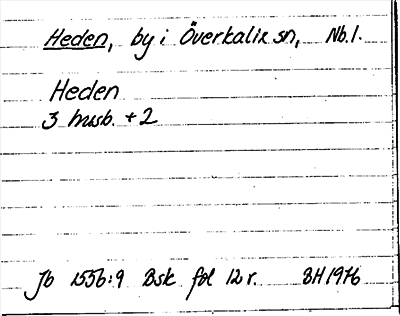 Heden, by i Överkalix sn, Nb.l.
Heden
3 husb. + 2
Jb 1556:9 Bsk fol 12 r. BH 1976